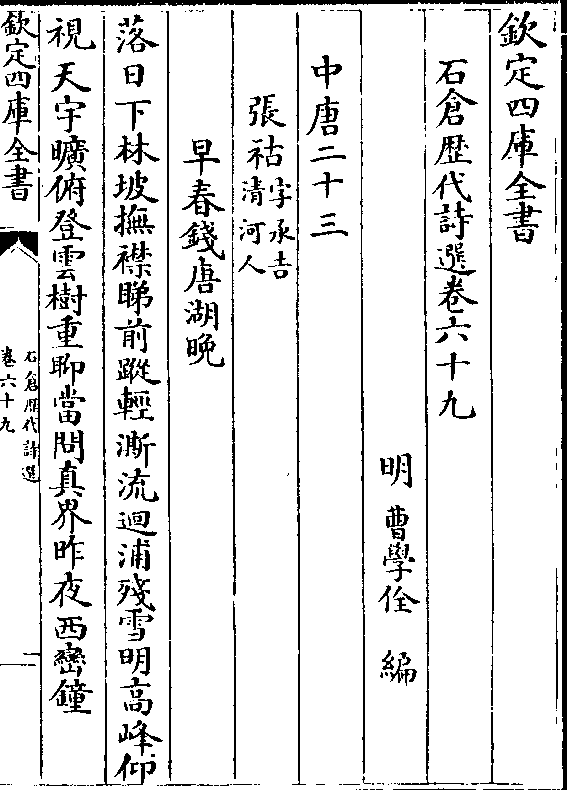 欽定四庫全書
石倉歷代詩選卷六十九
明 曹學佺 編
中唐二十三
張祜字承吉清河人
早春錢唐湖晚
落日下林坡撫襟睇前蹤輕澌流迴浦殘雪明高峰仰
視天宇曠俯登雲樹重聊當問真界昨夜西巒鐘
欽定四庫全書
石倉歷代詩選
卷六十九
一